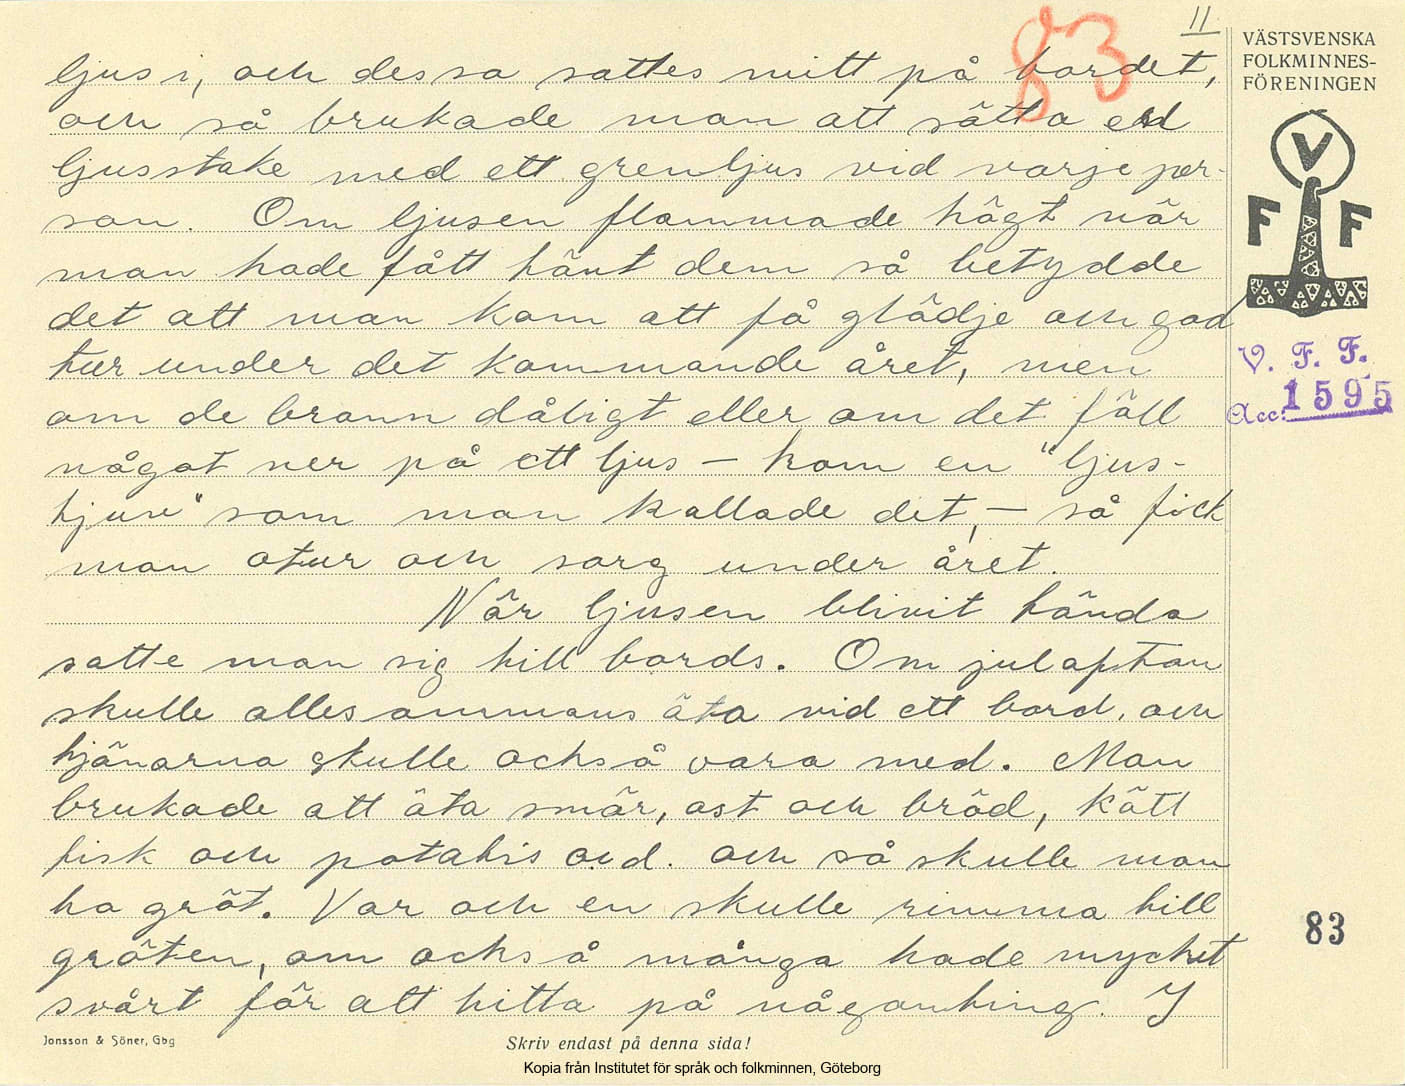 11
83
VÄSTSVENSKA
FOLKMINNES-
FÖRENINGEN
V
F F
V. F. F.
Acc: 1595
ljus i, och dessa sattes mitt på bordet,
och så brukade man att sätta en
ljusstake med ett grenljus vid varje per-
son. Om ljusen flammade högt när
man hade fått tänt dem så betydde
det att man kom att få glädje och god
tur under det kommande året, men
om de brann dåligt eller om det föll
något ner på ett ljus – kom en "ljus-
tjuv" som man kallade det, – så fick
man otur och sorg under året.
När ljusen blivit tända
satte man sig till bords. Om julaftan
skulle allesammans äta vid ett bord, och
tjänarna skulle också vara med. Man
brukade att äta smör, ost och bröd, kött
fisk och potatis o.d. och så skulle man
ha gröt. Var och en skulle rimma till
gröten, om också många hade mycket
svårt för att hitta på någonting. I
83
Jonsson & Söner, Gbg
Skriv endast på denna sida!
Kopia från Institutet för språk och folkminnen, Göteborg